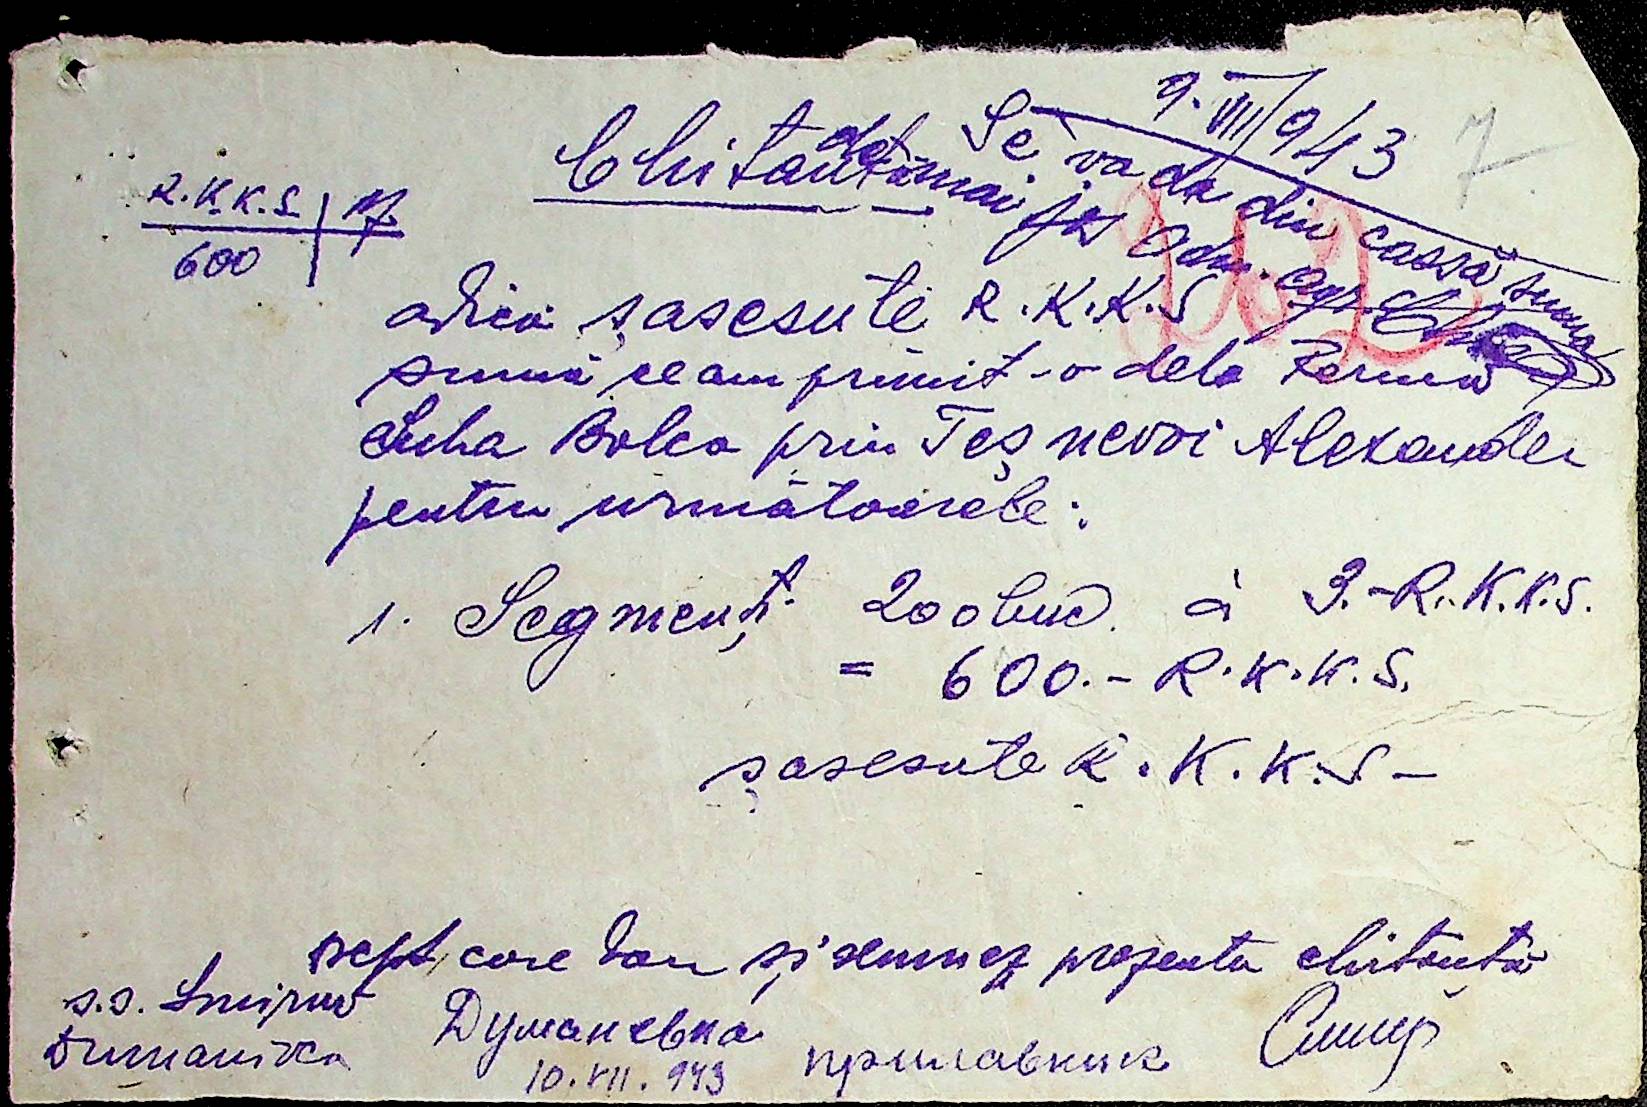 9.VIII/943
7
Chitanță
Se va da din cassă suma
de mai jos
R.K.K.S. | 
600
adică șasesute R.K.K.S
sumă ce am primit-o dela Ferma
Suha Balca prin Teșnevoi Alexander
pentru următoarele:
1. Segmenț. 200 buc. à 3.-R.K.K.S.
= 600.- R.K.K.S.
șasesute R.K.K.S -
drept, care dau și semnez prezenta chitanță
s.s. Smipnov
Dumanivca
Думаневка
10.VII.943
прилавник